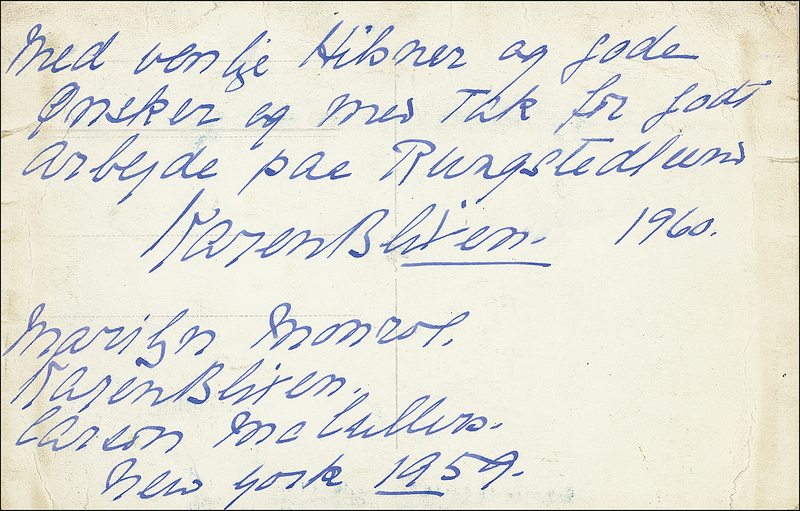 Med venlje Hilsner og gode
Ønsker og med Tak for godt
Arbejde paa Rungstedlund
Karen Blixen. 1960.
Marilyn Monroe.
Karen Blixen.
Carson McCullers.
New York 1959.